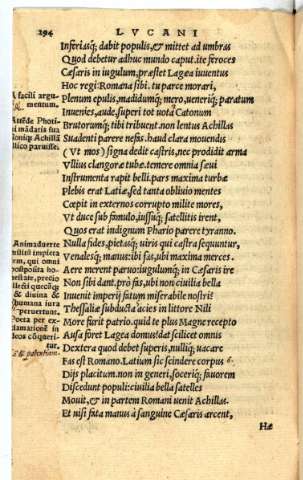 294 LVCANI
Inferiasq; dabit populis, & mittet ad umbras
Quod debetur adhuc mundo caput. ite feroces
Cæsaris in iugulum, præstet Lagea iuuentus
Hoc regi: Romana sibi. tu parce morari,
Plenum epulis, madidumq; mero, ueneriq; paratum
Inuenies, aude, superi tot uota Catonum
Brutorumq; tibi tribuent. non lentus Achillas
Suadenti parere nefas. haud clara mouendis
(Vt mos) signa dedit castris, nec prodidit arma
Vllius clangore tubæ. temere omnia sæui
Instrumenta rapit belli. pars maxima turbæ
Plebis erat Latiæ, sed tanta obliuio mentes
Cœpit in externos corrupto milite mores,
Vt duce sub famulo, iussuq; satellitis irent,
Quos erat indignum Phario parere tyranno.
Nulla fides, pietasq; uiris qui castra sequuntur,
Venalesq; manus: ibi fas, ubi maxima merces.
Aere merent paruo: iugulumq; in Cæsaris ire
Non sibi dant. prò fas, ubi non ciuilia bella
Inuenit imperij fatum miserabile nostri?
Thessaliæ subducta acies in littore Nili
More furit patrio. quid te plus Magne recepto
Ausa foret Lagea domus? dat scilicet omnis
Dextera quod debet superis, nulliq; uacare
Fas est Romano. Latium sic scindere corpus
Dijs placitum. non in generi, soceriq; fauorem
Discedunt populi: ciuilia bella satelles
Mouit, & in partem Romani uenit Achillas.
Et nisi fata manus à sanguine Cæsaris arcent,
Hæ
A facili argu-
mentum.
ni mādatis
Achillas
paruisse.
Animaduerte
militū impieta
tem, qui omni
postposita ho-
nestate, precio
& diuina &
humana iura
peruertunt.
Poeta per ex-
clamationē in